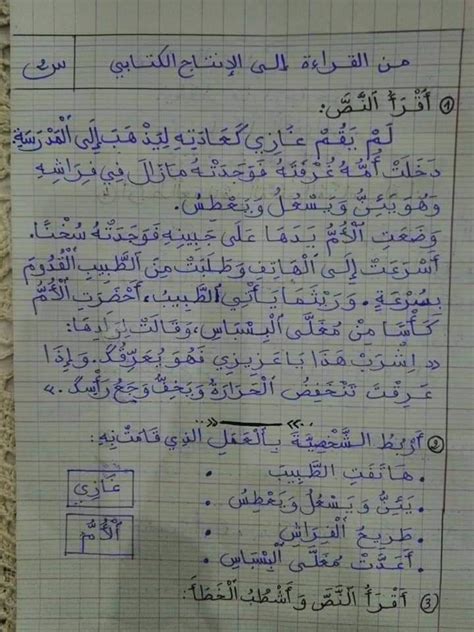 من القراءة إلى الإنتاج الكتابي
س2
① أَقْرَأُ النَّصَّ:
لَمْ يَقُمْ غَازِي كَعَادَتِهِ لِيَذْهَبَ إِلَى الْمَدْرَسَةِ.
دَخَلَتْ أُمُّهُ غُرْفَتَهُ فَوَجَدَتْهُ مَازَالَ فِي فِرَاشِهِ
وَهُوَ يَئِنُّ وَيَسْعُلُ وَيَعْطِسُ.
وَضَعَتِ الْأُمُّ يَدَهَا عَلَى جَبِينِهِ فَوَجَدَتْهُ سُخْنًا.
أَسْرَعَتْ إِلَى الْهَاتِفِ وَطَلَبَتْ مِنَ الطَّبِيبِ الْقُدُومَ
بِسُرْعَةٍ. وَرَيْثَمَا يَأْتِي الطَّبِيبُ، أَحْضَرَتِ الْأُمُّ
كَأْسًا مِنْ مُغَلَّى الْبِسْبَاسِ، وَقَالَتْ لِوَلَدِهَا:
« اِشْرَبْ هَذَا يَا عَزِيزِي فَهُوَ يُعَرِّقُكَ. وَإِذَا
عَرِقْتَ تَنْخَفِضُ الْحَرَارَةُ وَيَخِفُّ وَجَعُ رَأْسِكَ. »
② أَرْبِطُ الشَّخْصِيَّةَ بِالْعَمَلِ الَّذِي قَامَتْ بِهِ:
• هَاتَفَتِ الطَّبِيبَ
غَازِي
• يَئِنُّ وَيَسْعُلُ وَيَعْطِسُ
• طَرِيحُ الْفِرَاشِ
الْأُمُّ
• أَعَدَّتْ مُغَلَّى الْبِسْبَاسِ
③ أَقْرَأُ النَّصَّ وَأَشْطُبُ الْخَطَأَ: